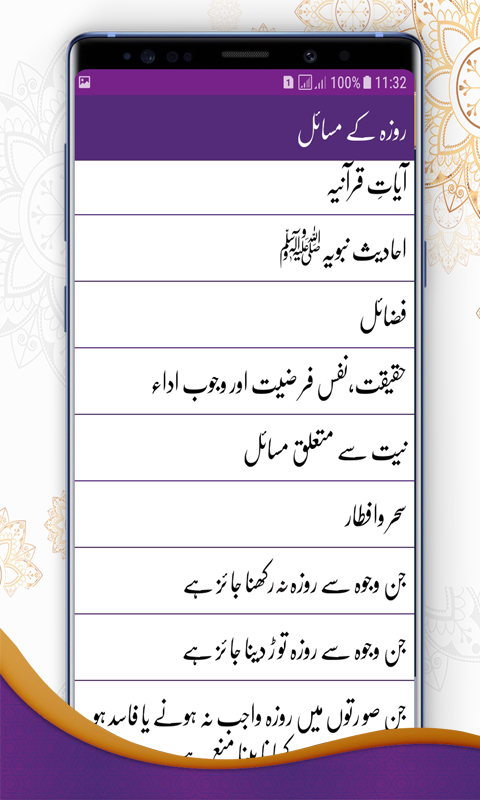 100% 11:32
روزہ کے مسائل
آیاتِ قرآنیہ
احادیث نبویہ ﷺ
فضائل
حقیقت،نفس فرضیت اور وجوب اداء
نیت سے متعلق مسائل
سحر وافطار
جن وجوہ سے روزہ نہ رکھنا جائز ہے
جن وجوہ سے روزہ توڑ دینا جائز ہے
جن صورتوں میں روزہ واجب نہ ہونے یا فاسد ہو
کھانا پینا منع ہے